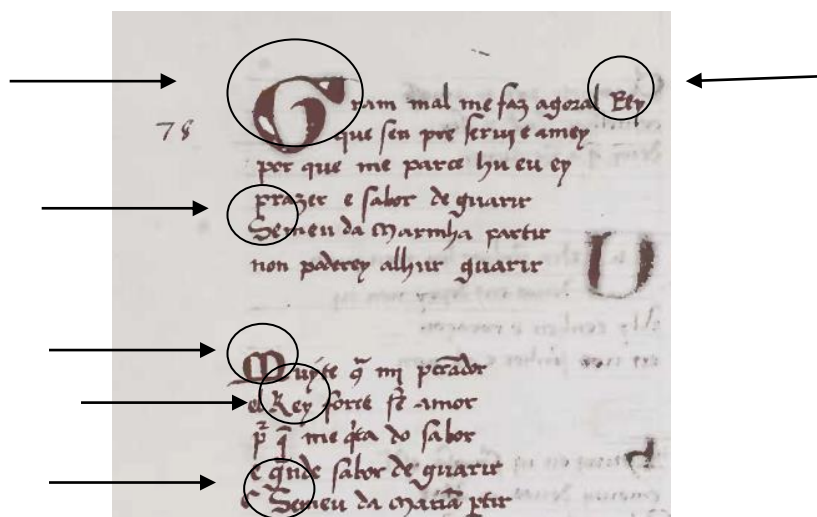 Gram mal me faz agoral Rey
78
que sen pre servi e amey
por que me parce hu eu ey
prazer e sabor de guarir
Semeu da Marinha partir
non poderey alhur guarir
U
Muyte q̃ mi pecador
el Rey forte sẽ amor
p̃ q̃ me q̃ta do sabor
e g̃nde sabor de guarir
E Semeu da Mariã ptir